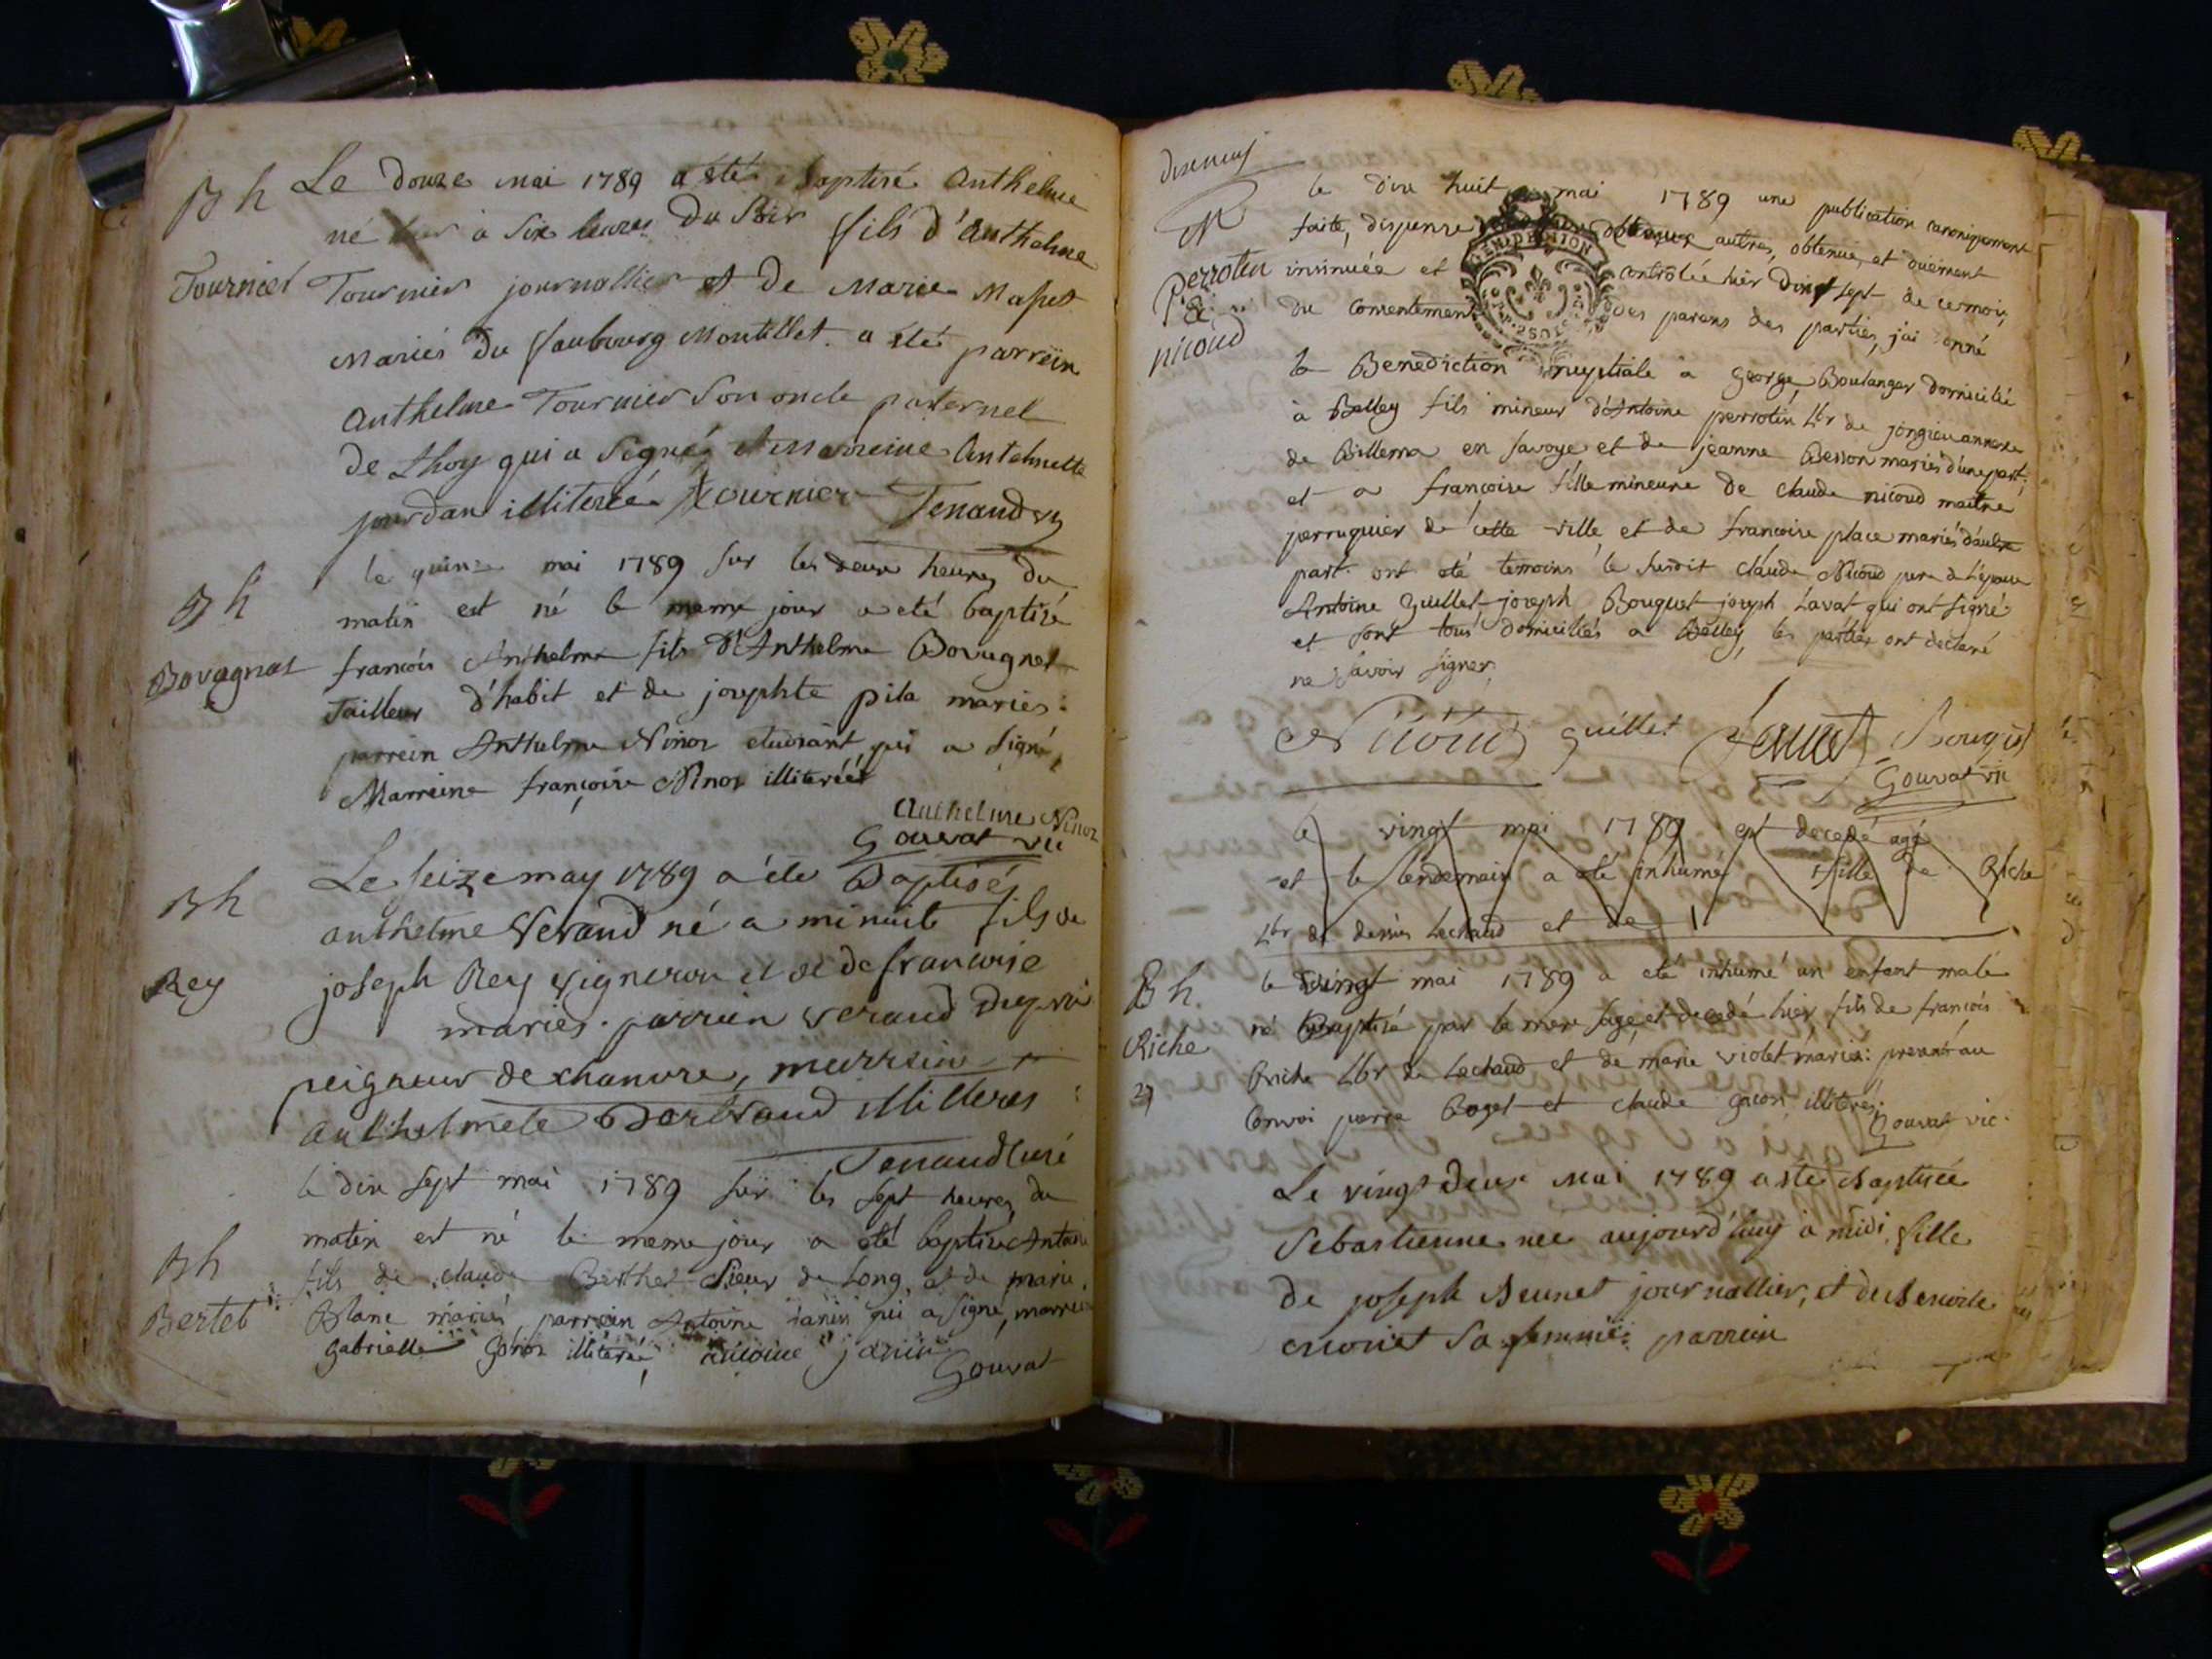 B h Le douze mai 1789 a été baptisé Anthelme
né hier a six heures du soir fils d'Anthelme
Tournier Tournier journallier et de Marie Mapet
mariés du faubourg Montillet. a été parrein
Anthelme Tournier son oncle paternel
de Lhoy qui a signé Marreine Anthelmette
jourdan illiterée Tournier Tenand
B h le quinze mai 1789 sur les deux heures du
matin est né le meme jour a eté baptisé
Bovagnet francois Anthelme fils d'Anthelme Bovagnet
Tailleur d'habit et de josephte pila mariés:
parrein Anthelme Ninos etudiant qui a signé,
Marreine françoise Ninos illiterée
Anthelme Ninos
Gouvat vic
B h Le seize may 1789 a éte Baptisé
anthelme Verand né a minuit fils de
Rey joseph Rey vigneron et de francoise
mariés. parrein Verand
peigneur de chanvre, marreine
anthelmete illiteres
Tenand curé
le dix sept mai 1789 sur les sept heures du
matin est né le meme jour a eté baptisé Antoine
B h fils de claude Berthet Sieur de Long, et de marie
Bertet Blanc mariés, parrein Antoine janin qui a signé, marreine
gabrielle illiterée, antoine janin
Gouvat
dixneuf
le dix huit mai 1789 une publication canoniquement
M faite, dispense des deux autres, obtenue, et duement
Perrotin insinuée et controlée hier dix sept de ce mois,
& du consentement des parens des parties, j'ai donné
nicoud la Benediction nuptiale a george, Boulanger domicilié
à Belley fils mineur d'Antoine perrotin Lbr de jongieu annexe
de Billema en Savoye et de jeanne Besson mariés d'une part;
et a françoise fille mineure de claude nicoud maitre
perruquier de cette ville et de francoise place mariés d'autre
part. ont eté temoins le susdit claude Nicoud pere de l'epouse
Antoine guillet joseph Bouquet joseph Lavat qui ont signé
et sont tous domiciliés a Belley, les parties ont declaré
ne savoir signer.
Nicoud guillet Bouquet
Gouvat vic
le vingt mai 1789 est decedé agé
et le lendemain a eté inhumé fille de Riche
Lbr de dessus Lechaud et de
B h le vingt mai 1789 a eté inhumé un enfant male
né Baptisé par la mere sage, et decedé hier, fils de francois
Riche Riche Lbr de Lechaud et de marie violet mariés: presents au
Convoi pierre Boget et claude gacon illiterés.
Gouvat vic.
Le vingt deux mai 1789 a ete baptisée
Sebastienne nee aujourd'huy à midi, fille
de joseph Brunet journallier, et de Benoite
sa femme: parrein